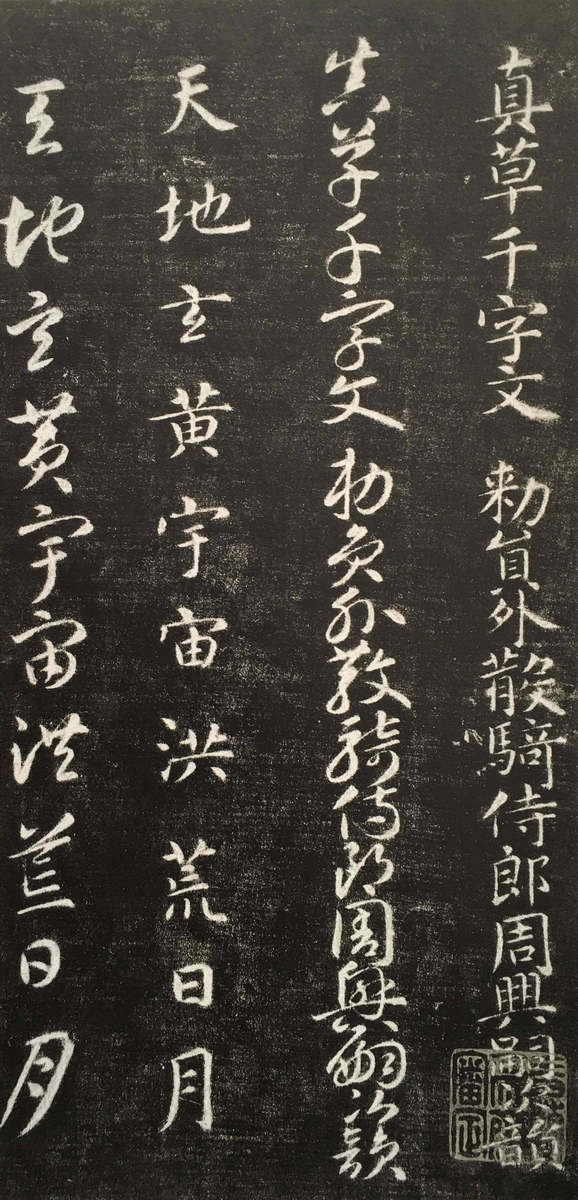 真草千字文 勑員外散騎侍郎周興嗣次韻
真草千字文 勑員外散騎侍郎周興嗣次韻
天地玄黄宇宙洪荒日月
天地玄黄宇宙洪荒日月